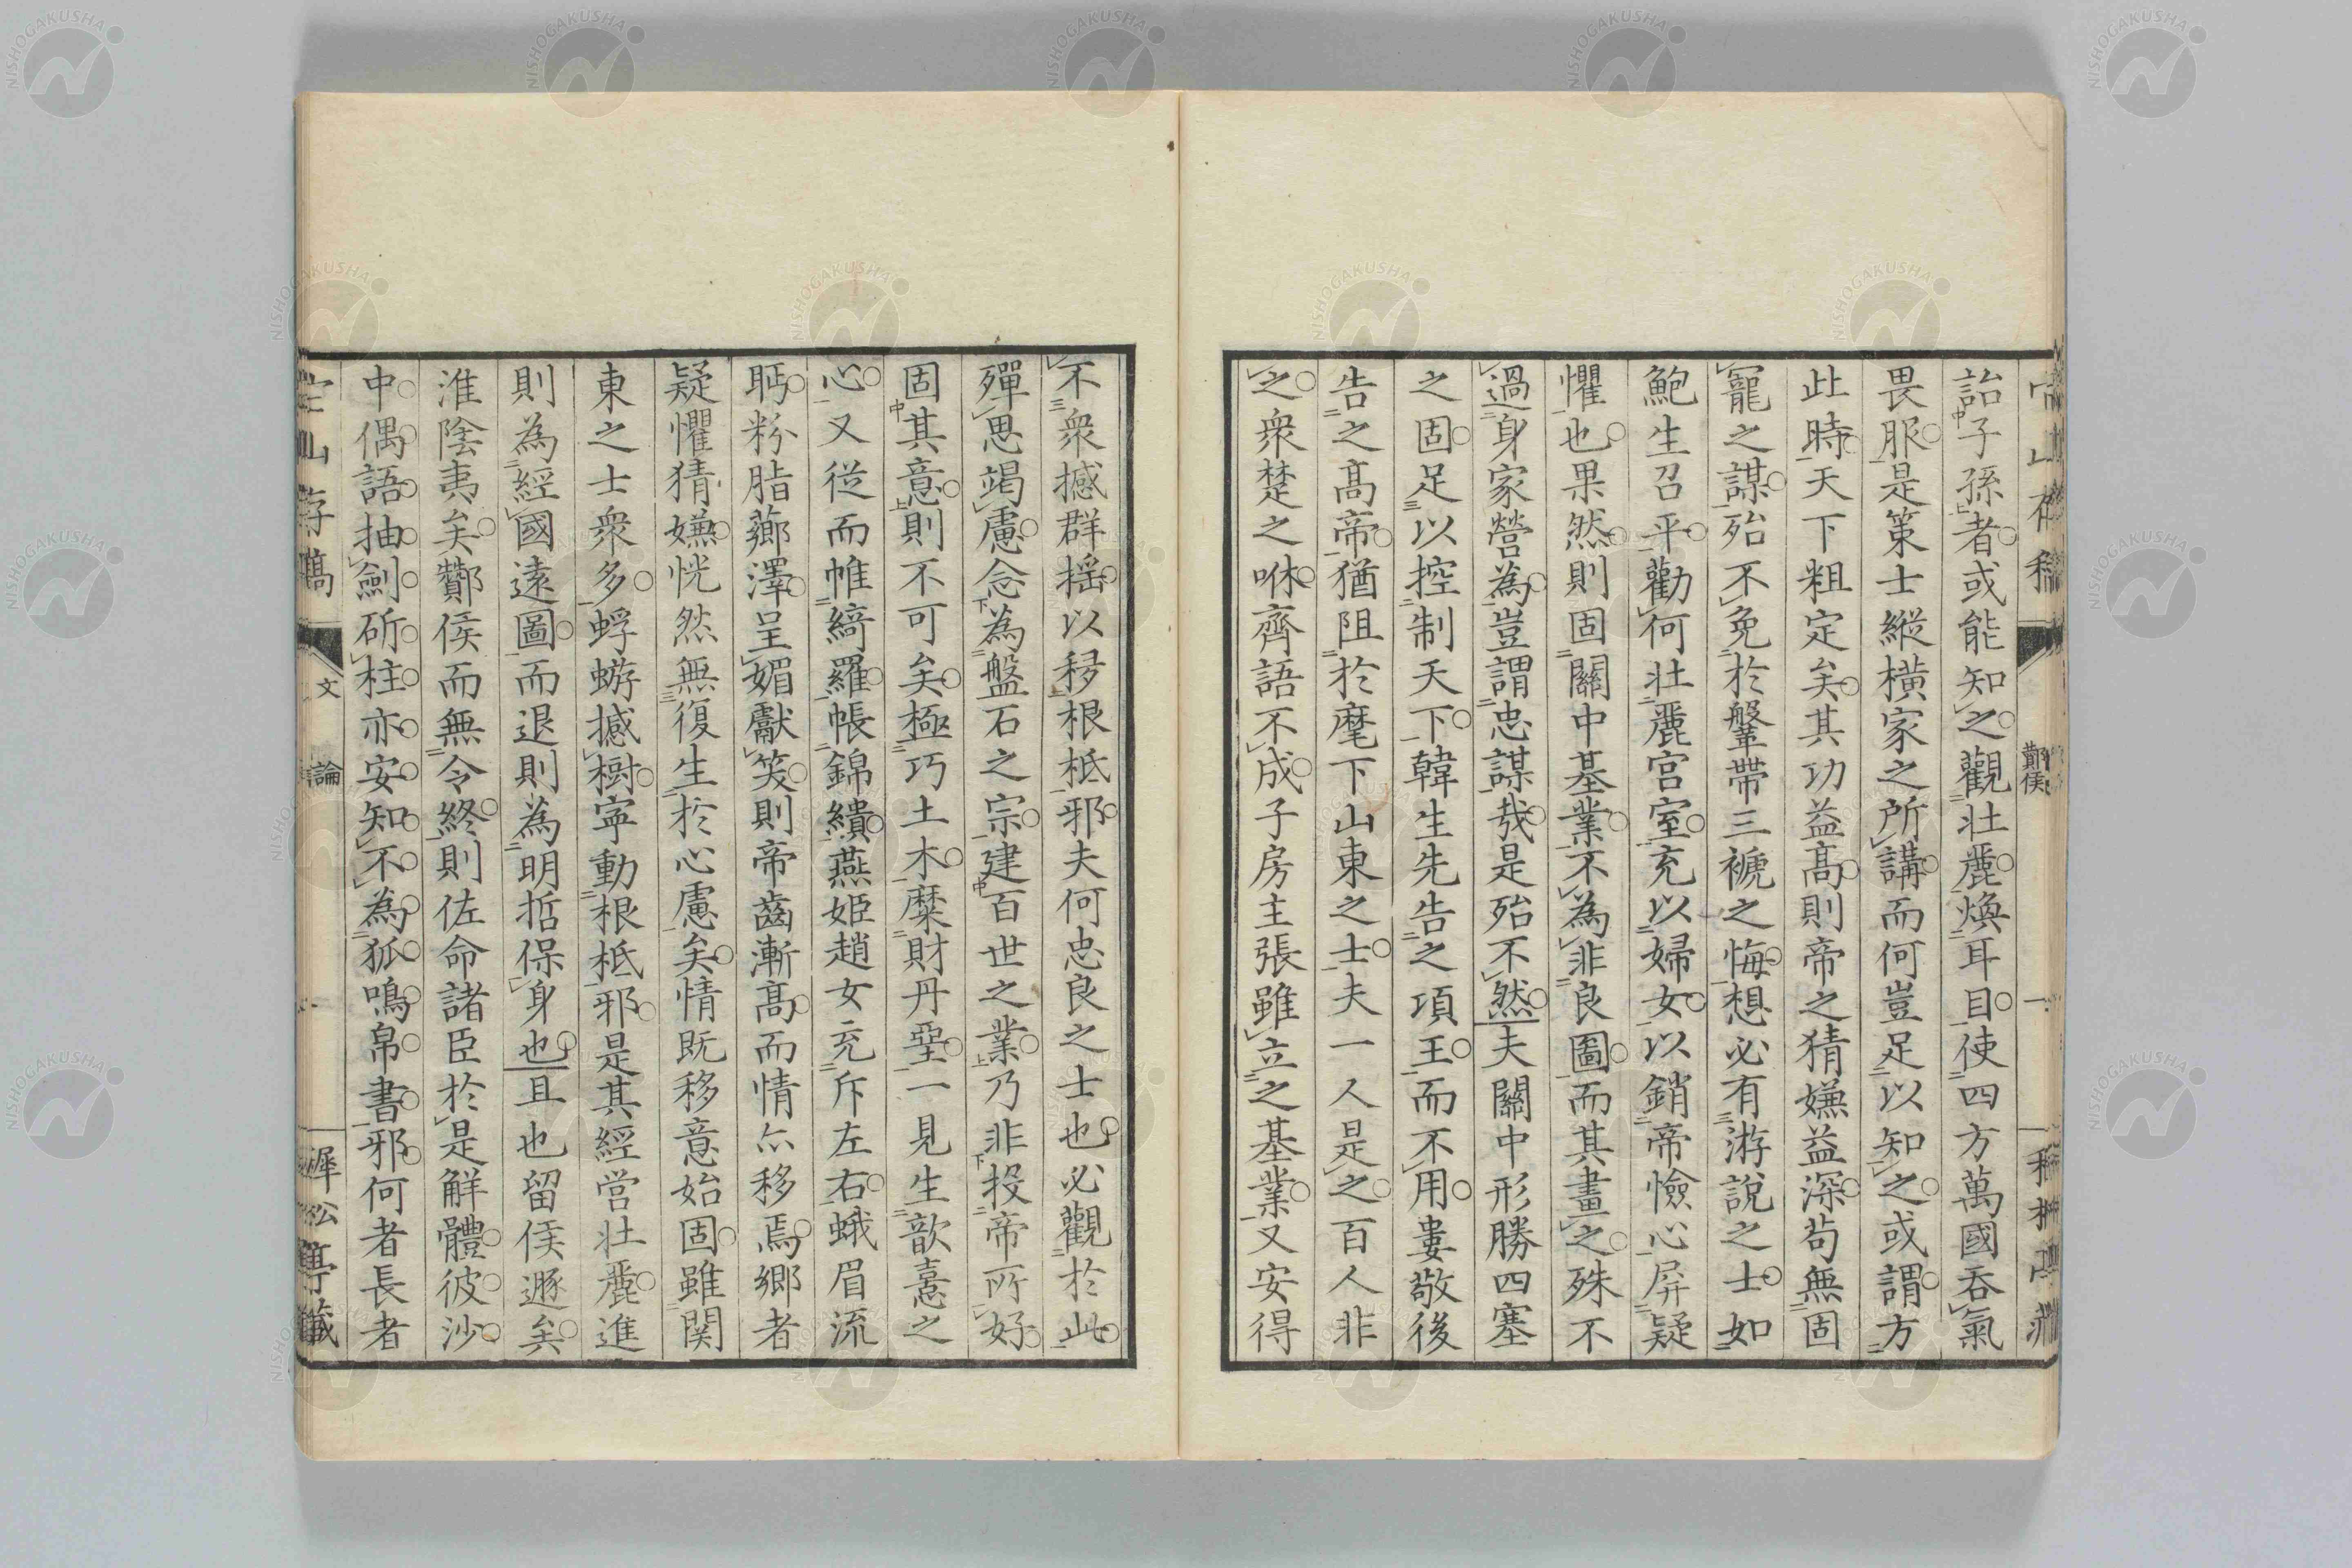 詒子孫者或能知之觀壯麗煥耳目使四方萬國吞氣
畏服是策士縱橫家之所講而何豈足以知之或謂方
此時天下粗定矣其功益髙則帝之猜嫌益深苟無固
寵之謀殆不免於鞶帶三褫之悔想必有游說之士如
鮑生召平勸何壯麗宮室充以婦女以銷帝憸心屏疑
懼也果然則固關中基業不為非良圖而其畫之殊不
過身家營為豈謂忠謀哉是殆不然夫關中形勝四塞
之固足以控制天下韓生先告之項王而不用婁敬後
告之髙帝猶阻於麾下山東之士夫一人是之百人非
之衆楚之咻齊語不成子房主張雖立之基業又安得
不衆撼群搖以移根柢邪夫何忠良之士也必觀於此
殫思竭慮念為盤石之宗建百世之業乃非投帝所好
固其意則不可矣極巧土木糜財丹堊一見生歆憙之
心又從而帷綺羅帳錦繢燕姬趙女充斥左右蛾眉流
眄粉脂薌澤呈媚獻笑則帝齒漸髙而情亦移焉鄉者
疑懼猜嫌恍然無復生於心慮矣情既移意始固雖関
東之士衆多蜉蝣撼樹寧動根柢邪是其經営壯麗進
則為經國遠圖而退則為明哲保身也且也留侯遯矣
淮陰夷矣酇侯而無令終則佐命諸臣於是解體彼沙
中偶語抽劍斫柱亦安知不為狐鳴帛書邪何者長者
宕山存稿
文
論
犀松亭藏
NISHOGAKUSHA